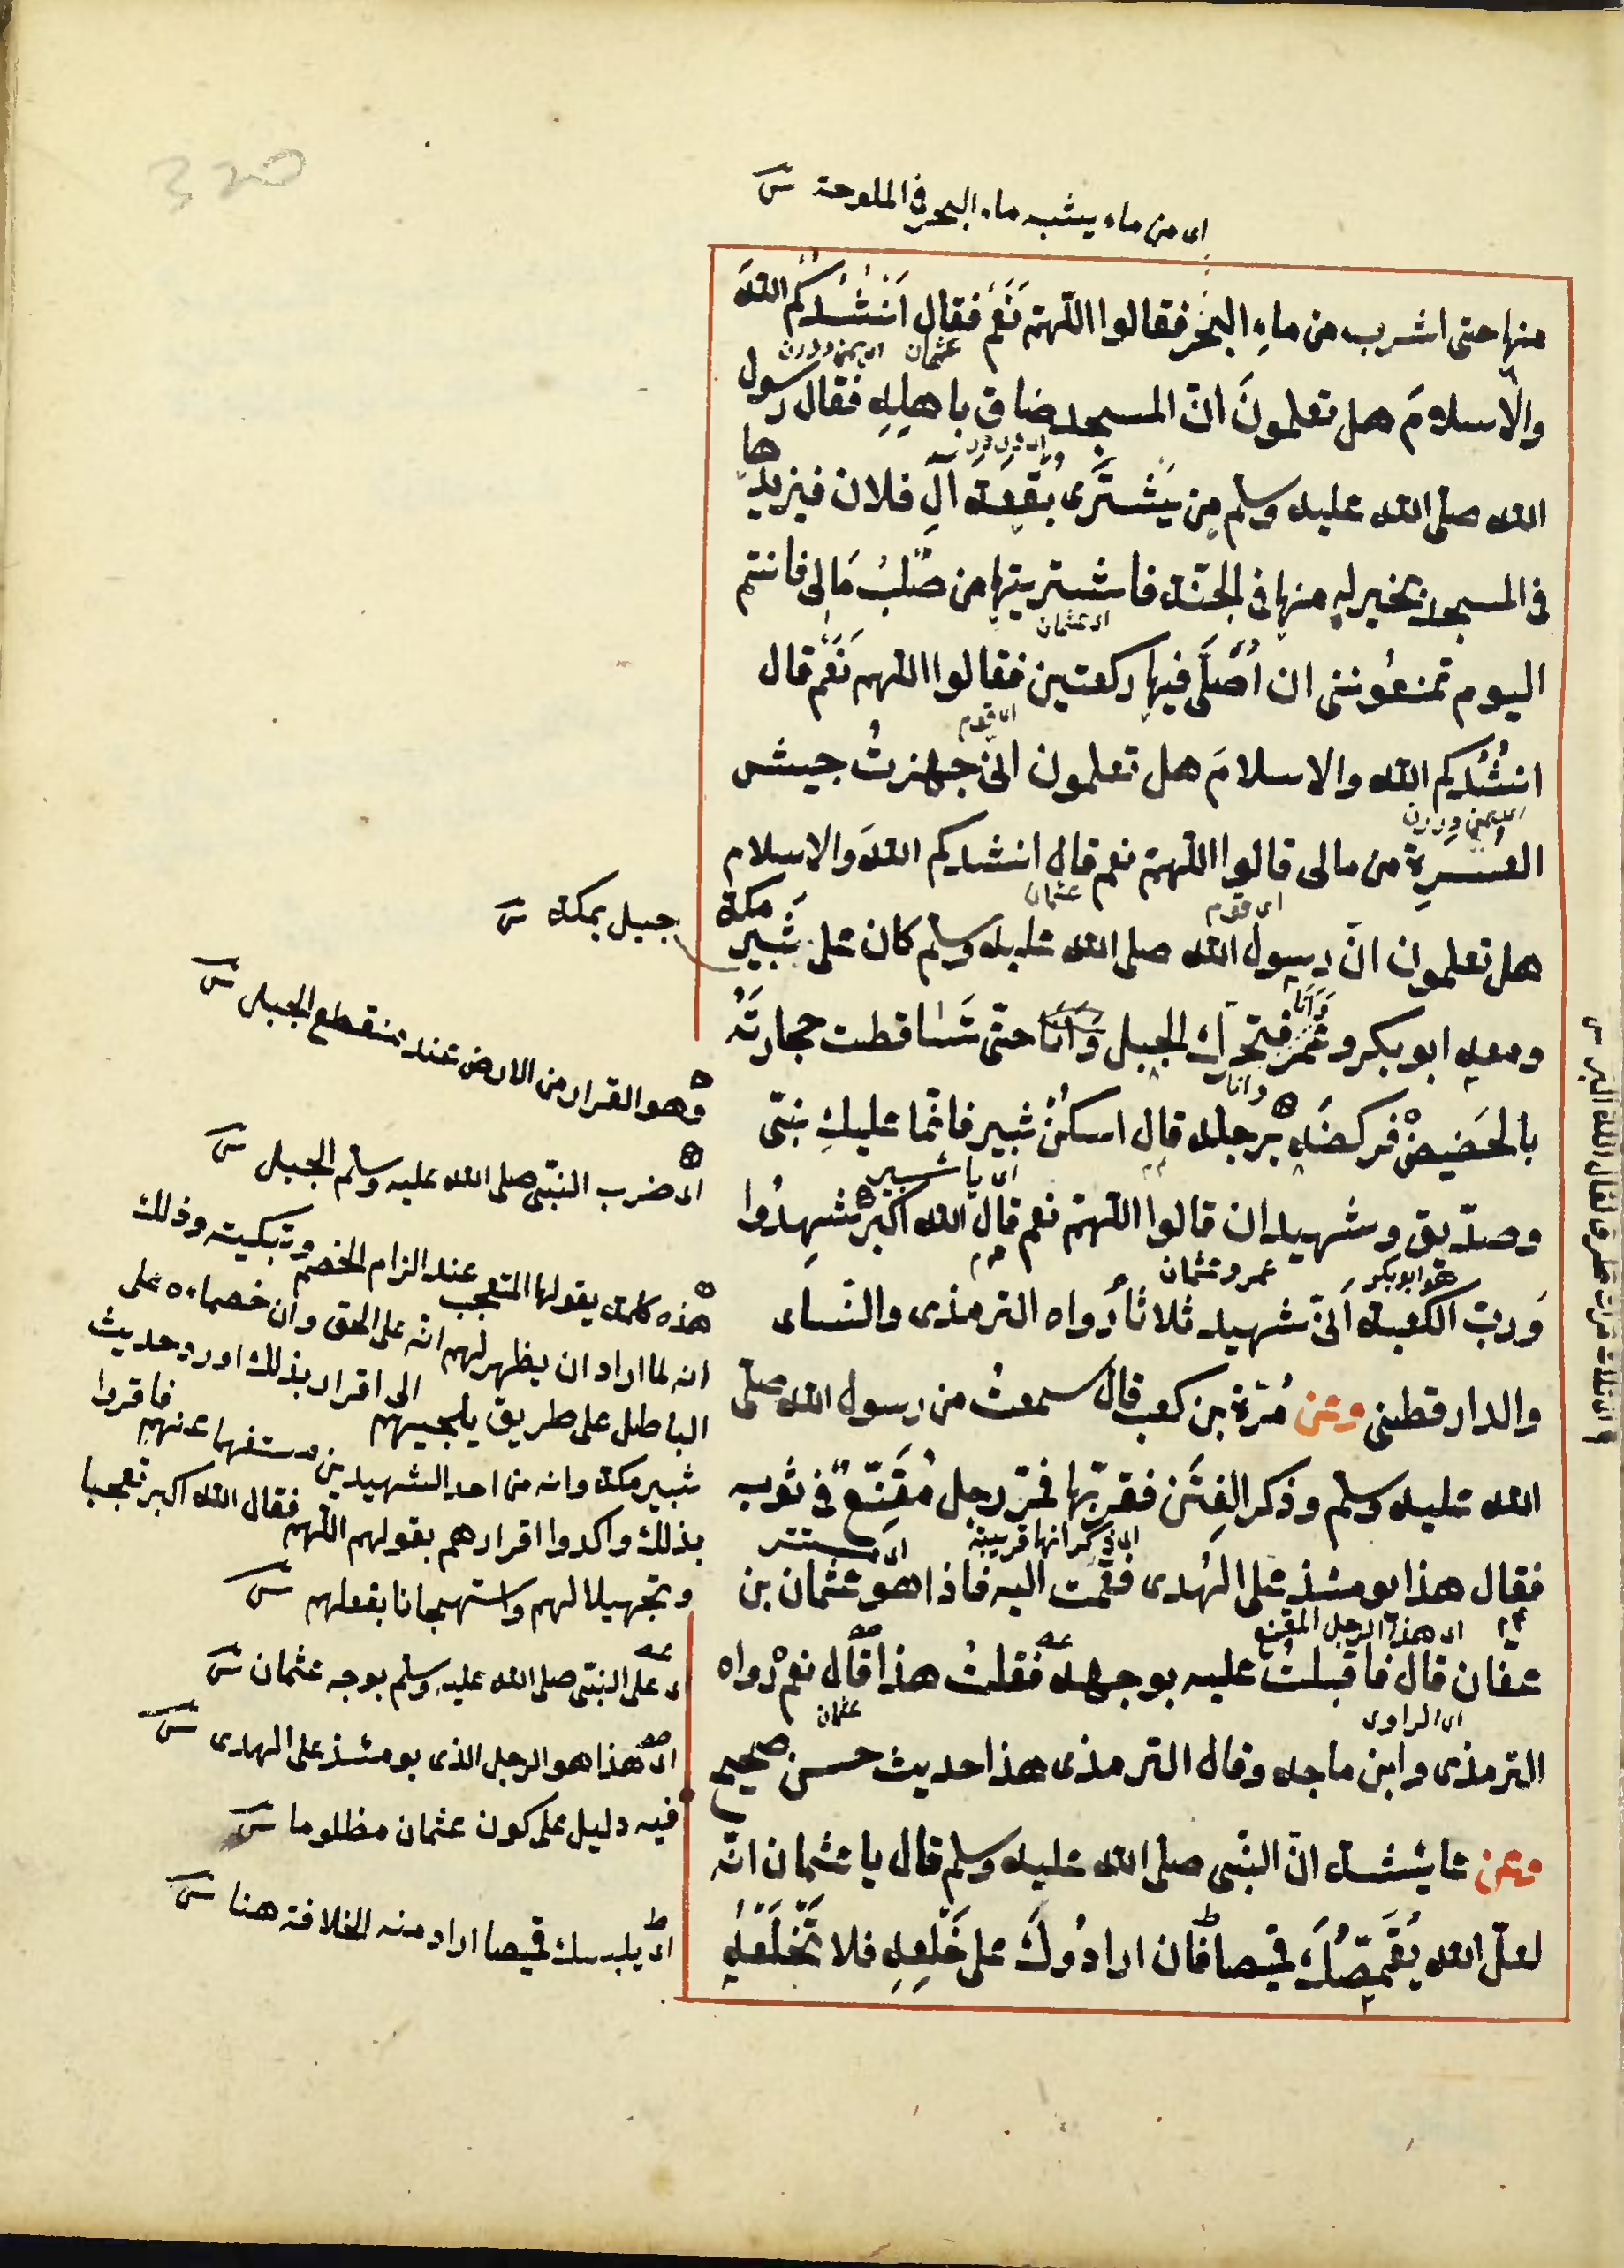 320
اى من ماء يشبه ماء البحر فى الملوحة
منها حتى اشرب من ماءِ البحر فقالوا اللّهمّ نَعَم فقال اَنْشُدُكُم اللّٰهَ
عثمان
والاسلامَ هل تعلمونَ انّ المسجد ضاق باهلِهِ فقال رسول
الله صلى الله عليه وسلم من يَشْتَرِى بُقعَةَ آلِ فلان فيزيدها
فى المسجد بخير له منها فى الجنّة فاشتريتها من صُلْبِ مَالى فانتم
اى عثمان
اليوم تمنعُوننى ان اُصَلّى فيها ركعتين فقالوا اللّهم نَعَم قال
اى قوم
انشُدُكم الله والاسلامَ هل تعلمون انى جهزتُ جيش
العُسرةِ من مالى قالوا اللّهمّ نعم قال انشدكم اللهَ والاسلام
عثمان
اى قوم
هل تعلمون انّ رسول الله صلى الله عليه وسلم كان على ثَبير مكة
جبل بمكة
ومعه ابو بكر وعُمر وَاَنَا فتحرّك الجبل حتّى تَسَاقطت حجارتُهُ
وانا
بالحَضيضْ فركضَهُ برجله قال اسكُنْ ثبير فانّما عليك نبىّ
اى يا ثبير
وصدّيق وشهيدان قالوا اللّهمّ نعم قال الله اكبر شهِدُوا
هو ابو بكر
عمر وعثمان
وَربّ الكعبة اَنّى شهيد ثلاثاً رواه الترمذى والنّساى
والدارقطنى وعن مُرّة بن كعب قال سمعتُ من رسول الله صلى
الله عليه وسلم وذكر الفِتَن فقربّها فمرّ رجل مُقَنّع فى ثوب
اى ذكر انها قريبة
اى مستتر
فقال هذا يومئذ على الهُدى فقمت اليه فاذا هو عثمان بن
اى هذا الرجل المقنع
عفّان قال فاقبلتُ عليه بوجهه فقلتُ هذا قال نعم رواه
اى الراوى
عثمان
الترمذى وابن ماجه وقال الترمذى هذا حديث حسن صحيح
وعن عايشة انّ النّبى صلى الله عليه وسلم قال يا عثمان انّه
لعلّ الله يُقَمّصُكَ قميصا فان ارادُوكَ على خَلعِهِ فلا تَخْلَعْهُ
وهو القرار من الارض عند منقطع الجبل
اى ضرب النبّى صلى الله عليه وسلم الجبل
هذه كلمة يقولها المتعجب عند الزام الخصم وتبكيته وذلك
انه لما اراد ان يظهر لهم انه على الحق وان خصماءه على
الباطل على طريق يلجيهم الى اقرار بذلك اورد حديث
ثبير مكة وانه من احد الشهيدين مستفهما عنهم فاقروا
بذلك واكدوا اقرارهم بقولهم اللّهم فقال الله اكبر تعجبا
وتجهيلا لهم واستهجانا بفعلهم
على النبّى صلى الله عليه وسلم بوجه عثمان
اى هذا هو الرجل الذى يومئذ على الهدى
فيه دليل على كون عثمان مظلوما
اى يلبسك قميصا اراد منه الخلافة هنا